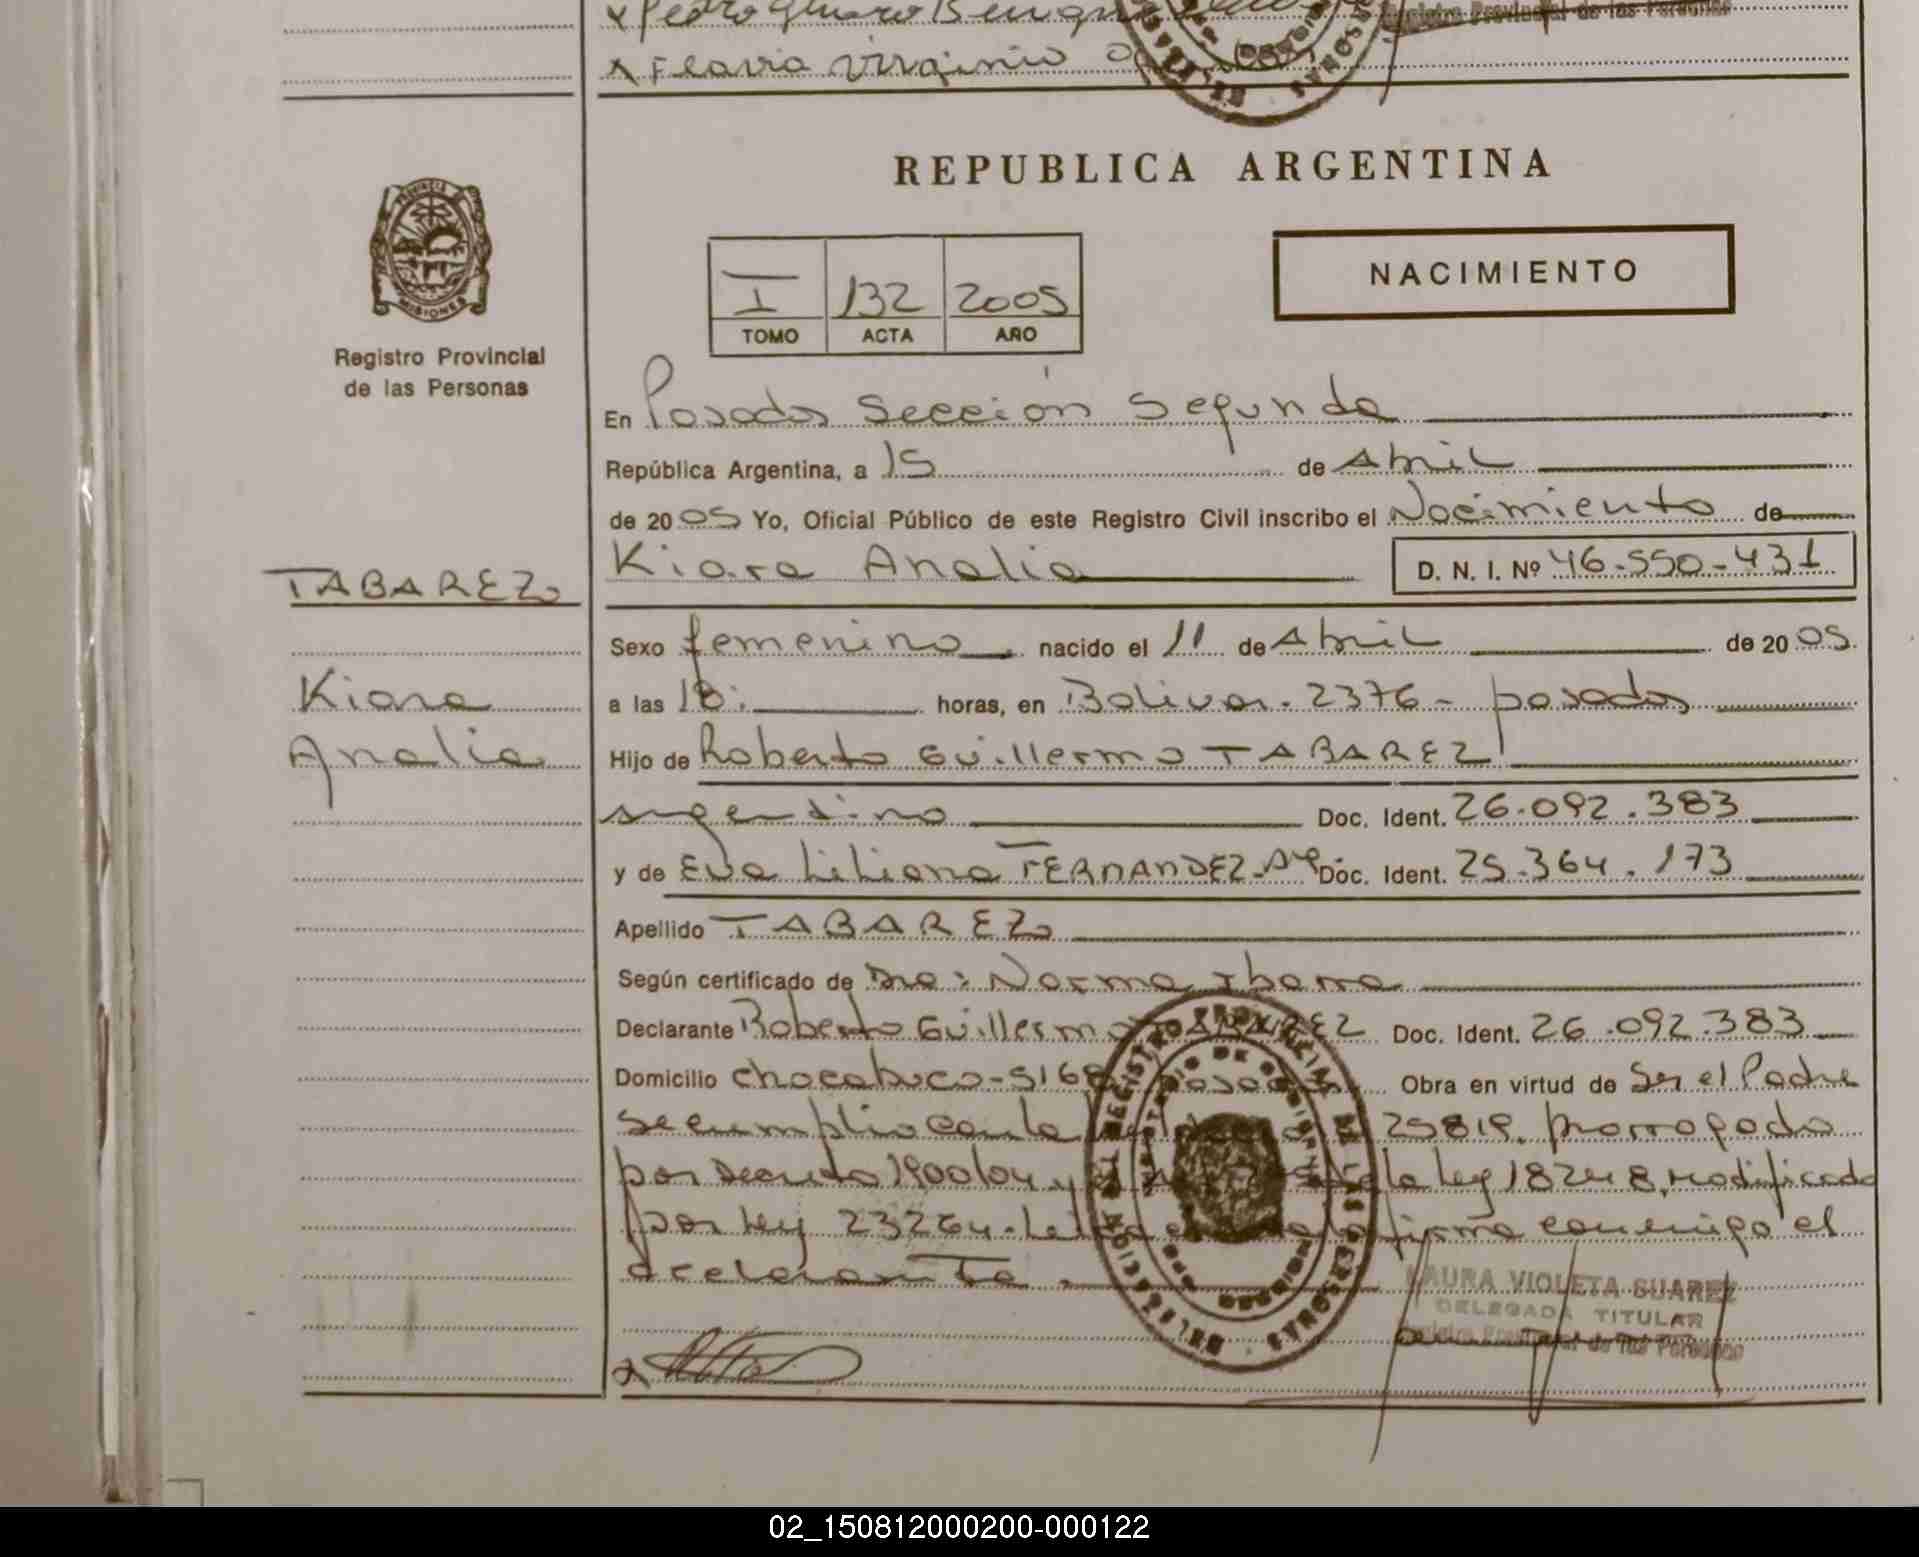 x Pedro Genaro
Registro Provincial de las Personas
x Flavia Virginia
REPUBLICA ARGENTINA
PROVINCIA
MISIONES
Registro Provincial
de las Personas
I 132 2005
TOMO ACTA AÑO
NACIMIENTO
En Posadas Sección Segunda
República Argentina, a 15 de Abril
de 2005 Yo, Oficial Público de este Registro Civil inscribo el Nacimiento de
Kiara Analia D. N. I. Nº 46-550-431
TABAREZ
Kiara
Analia
Sexo femenino nacido el 11 de Abril de 2005
a las 18: horas, en Bolivar. 2376 - posadas
Hijo de Roberto Guillermo TABAREZ
argentino Doc. Ident. 26.092.383
y de Eva Liliana FERNANDEZ-Arg Doc. Ident. 25.364.173
Apellido TABAREZ
Según certificado de Dra: Norma Ibarra
Declarante Roberto Guillermo TABAREZ Doc. Ident. 26.092.383
Domicilio Chacabuco-516 Posadas Obra en virtud de Ser el Padre
se cumplio con la 25819. prorrogada
por Decreto 1900/04 y de la ley 18248, modificada
por ley 23264. firma conmigo el
declarante.
DELEGACION REGISTRO PROVINCIAL DE LAS PERSONAS
LAURA VIOLETA SUAREZ
DELEGADA TITULAR
Registro Provincial de las Personas
02_150812000200-000122